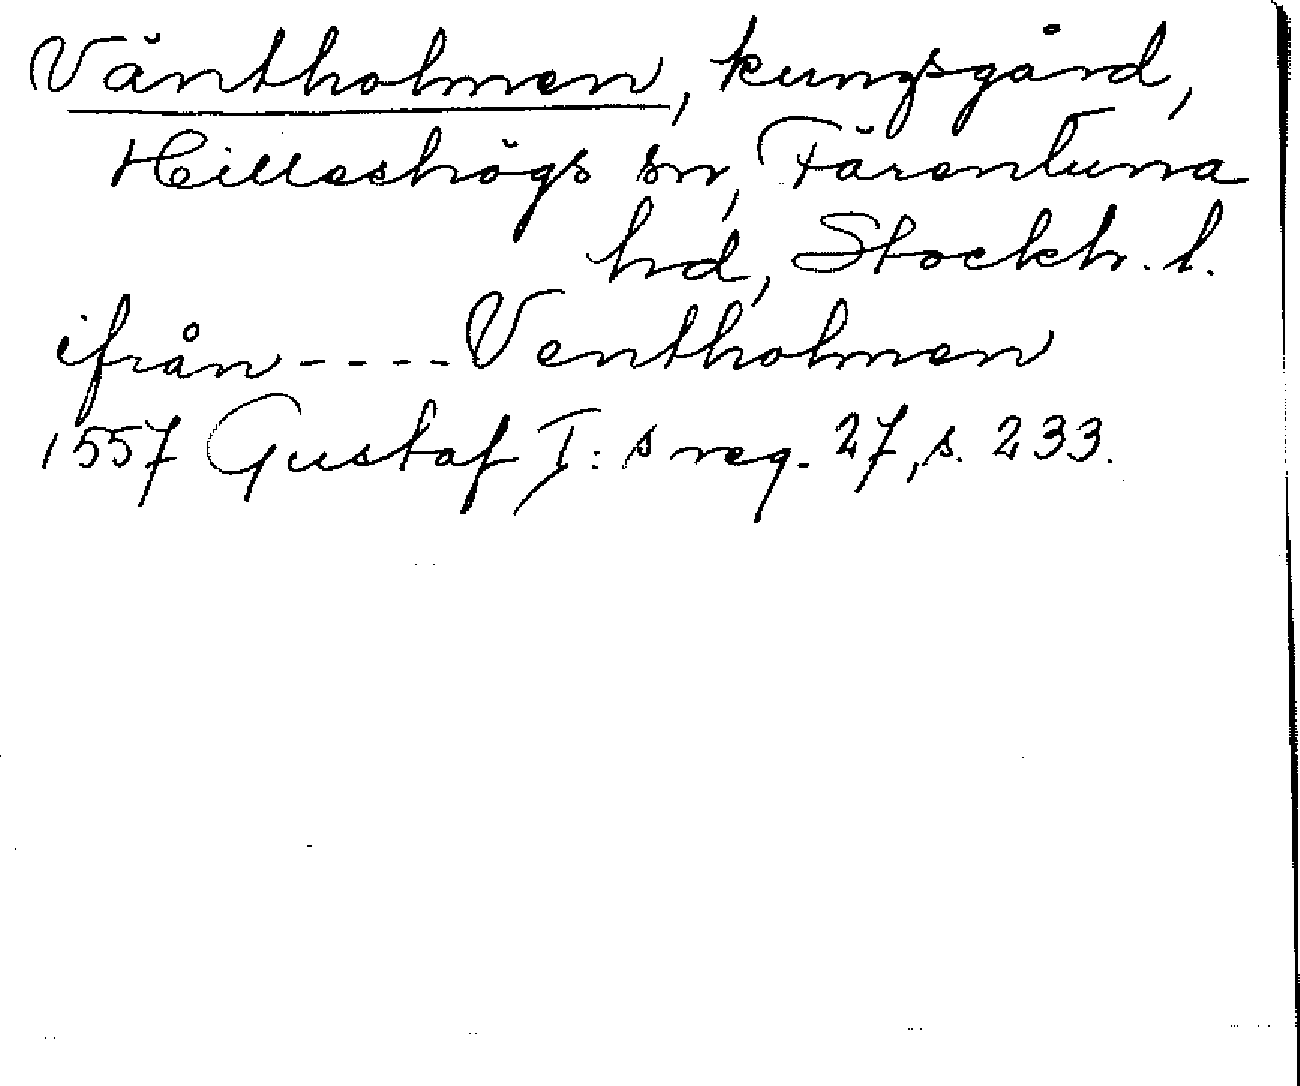 Väntholmen, kungsgård,
Hilleshögs sn, Färentuna
hd, Stockh. l.
ifrån - - - - Ventholmen
1557 Gustaf I: s reg. 27, s. 233.